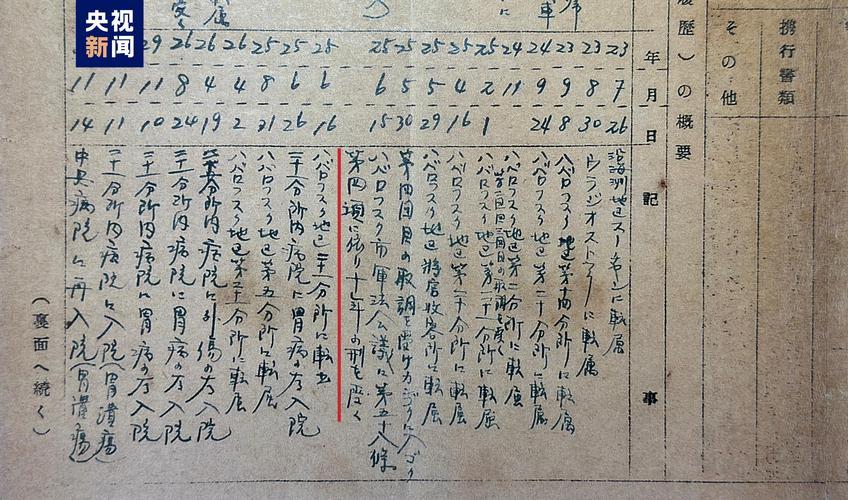 央视
新闻
携行書類
その他
履歴)の概要
年月日
記事
23 7 26 沿海洲地区スーチャンに転属
23 8 30 ウラジオストックに転属
23 9 8 ハバロフスク地区第十四分所に転属
24 9 24 ハバロフスク地区第二十分所に転属
24 11 ハバロフスク地区第一分所に転属
25 2 1 ハバロフスク地区第二十分所に転属
25 4 16 ハバロフスク地区第二十分所に転属
25 5 29 ハバロフスク地区将官收容所に転属
25 5 30 第四回目の取調を受け
25 6 15 ハバロフスク市軍法会議に第五十八條
第四項に依り二十年の刑を受く
25 6 16 ハバロフスク地区二十一分所に転出
25 6 26 二十一分所内病院に胃病の為入院
25 8 21 ハバロフスク地区第五分所に転属
26 4 2 ハバロフスク地区第二十一分所に転属
26 4 19 分所内病院に外傷の為入院
26 8 24 二十一分所内病院に胃病の為入院
29 11 10 二十一分所内病院に胃病の為入院
11 11 二十一分所内病院に入院(胃潰瘍)
11 14 中央病院に再入院(胃潰瘍)
(裏面へ続く)